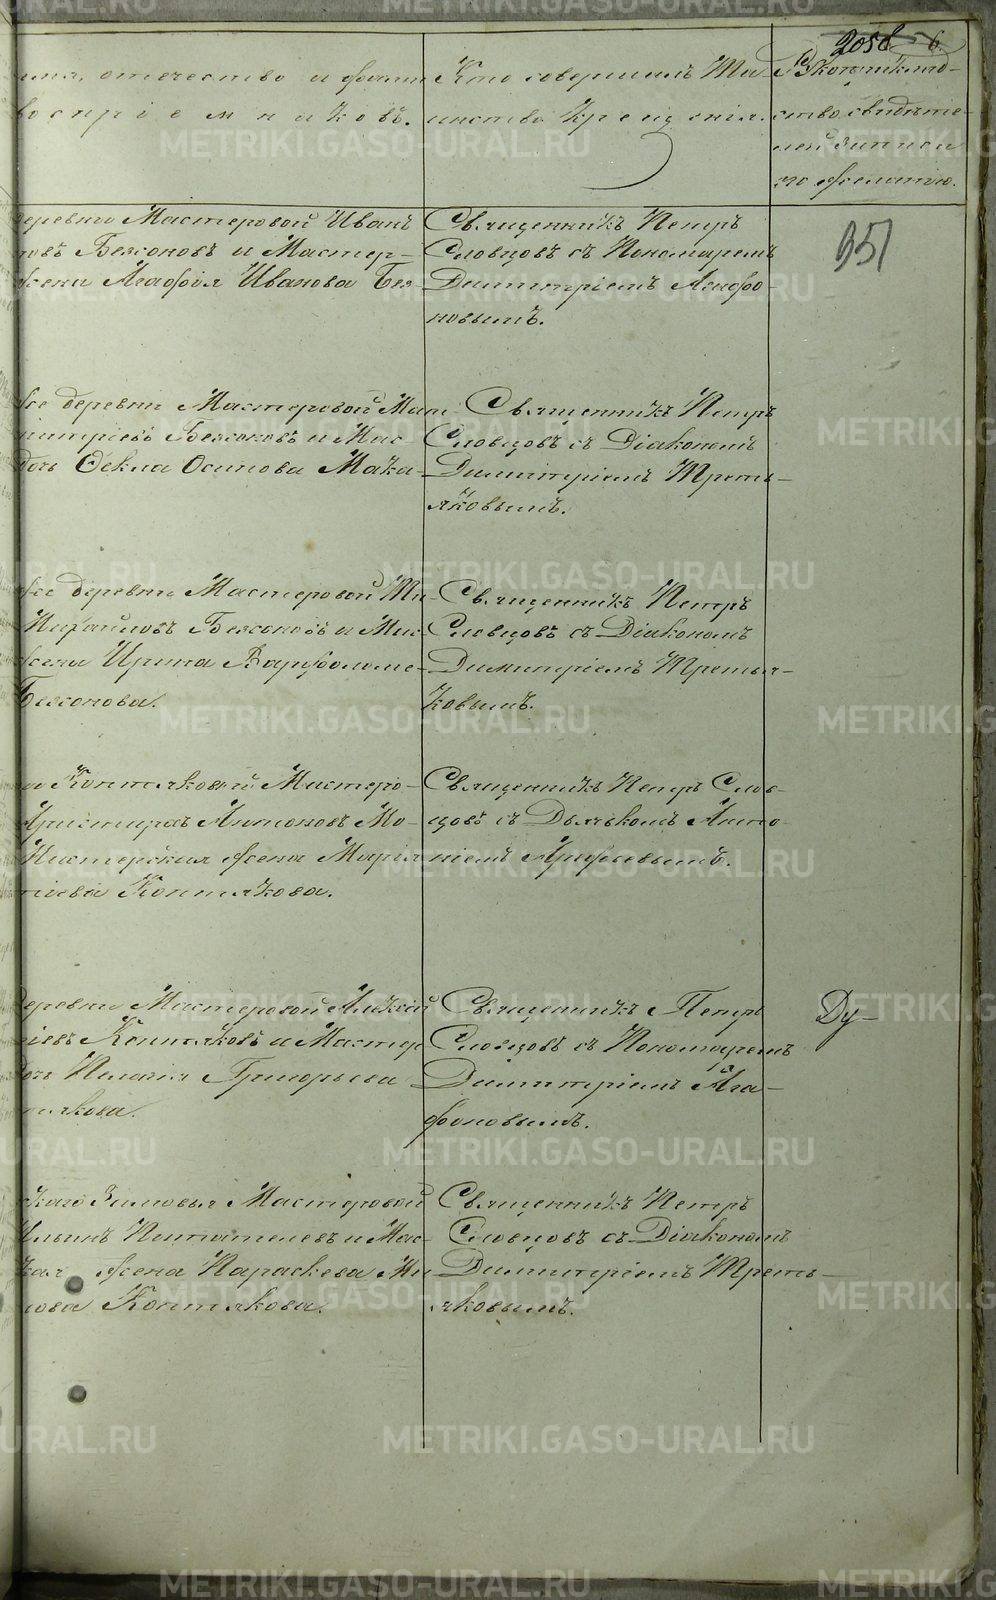 2058 6.
имя, отечество и фами
воспріемниковъ.
Кто совершилъ Та-
инство Крещенія.
Рукоприклад-
ство свидѣте-
лей записи
по желанію.
деревни Мастеровой Иванъ
новъ Безсоновъ и Мастер-
жена Агафія Иванова Без-
Священникъ Петръ
Словцовъ съ Пономаремъ
Димитріемъ Агафо-
новымъ.
951
же деревни Мастеровой Мат
митріевъ Безсоновъ и Мас-
дочь Ѳекла Осипова Мака-
Священникъ Петръ
Словцовъ съ Діакономъ
Димитріемъ Треть-
яковымъ.
же деревни Мастеровой Ти-
Михайловъ Безсоновъ и Мас-
жена Ирина Варфоломе-
Безсонова.
Священникъ Петръ
Словцовъ съ Діакономъ
Димитріемъ Третья-
ковымъ.
Коптяковой Мастеро-
Христофоръ Антоновъ Ко-
Мастерская жена Марія
тіева Коптякова.
Священникъ Петръ Слов-
цовъ съ Дьячкомъ Анто-
ніемъ Арефьевымъ.
деревни Мастеровой Алексій
ріевъ Коптяковъ и Мастер
дочь Пелагія Григорьева
тякова.
Священникъ Петръ
Словцовъ съ Пономаремъ
Димитріемъ Ага-
фоновымъ.
Ду-
скаго Зимовья Мастеровой
Ильинъ Питателевъ и Мас-
кая жена Параскева Ми
лова Коптякова.
Священникъ Петръ
Словцовъ съ Діакономъ
Димитріемъ Треть-
яковымъ.
METRIKI.GASO-URAL.RU